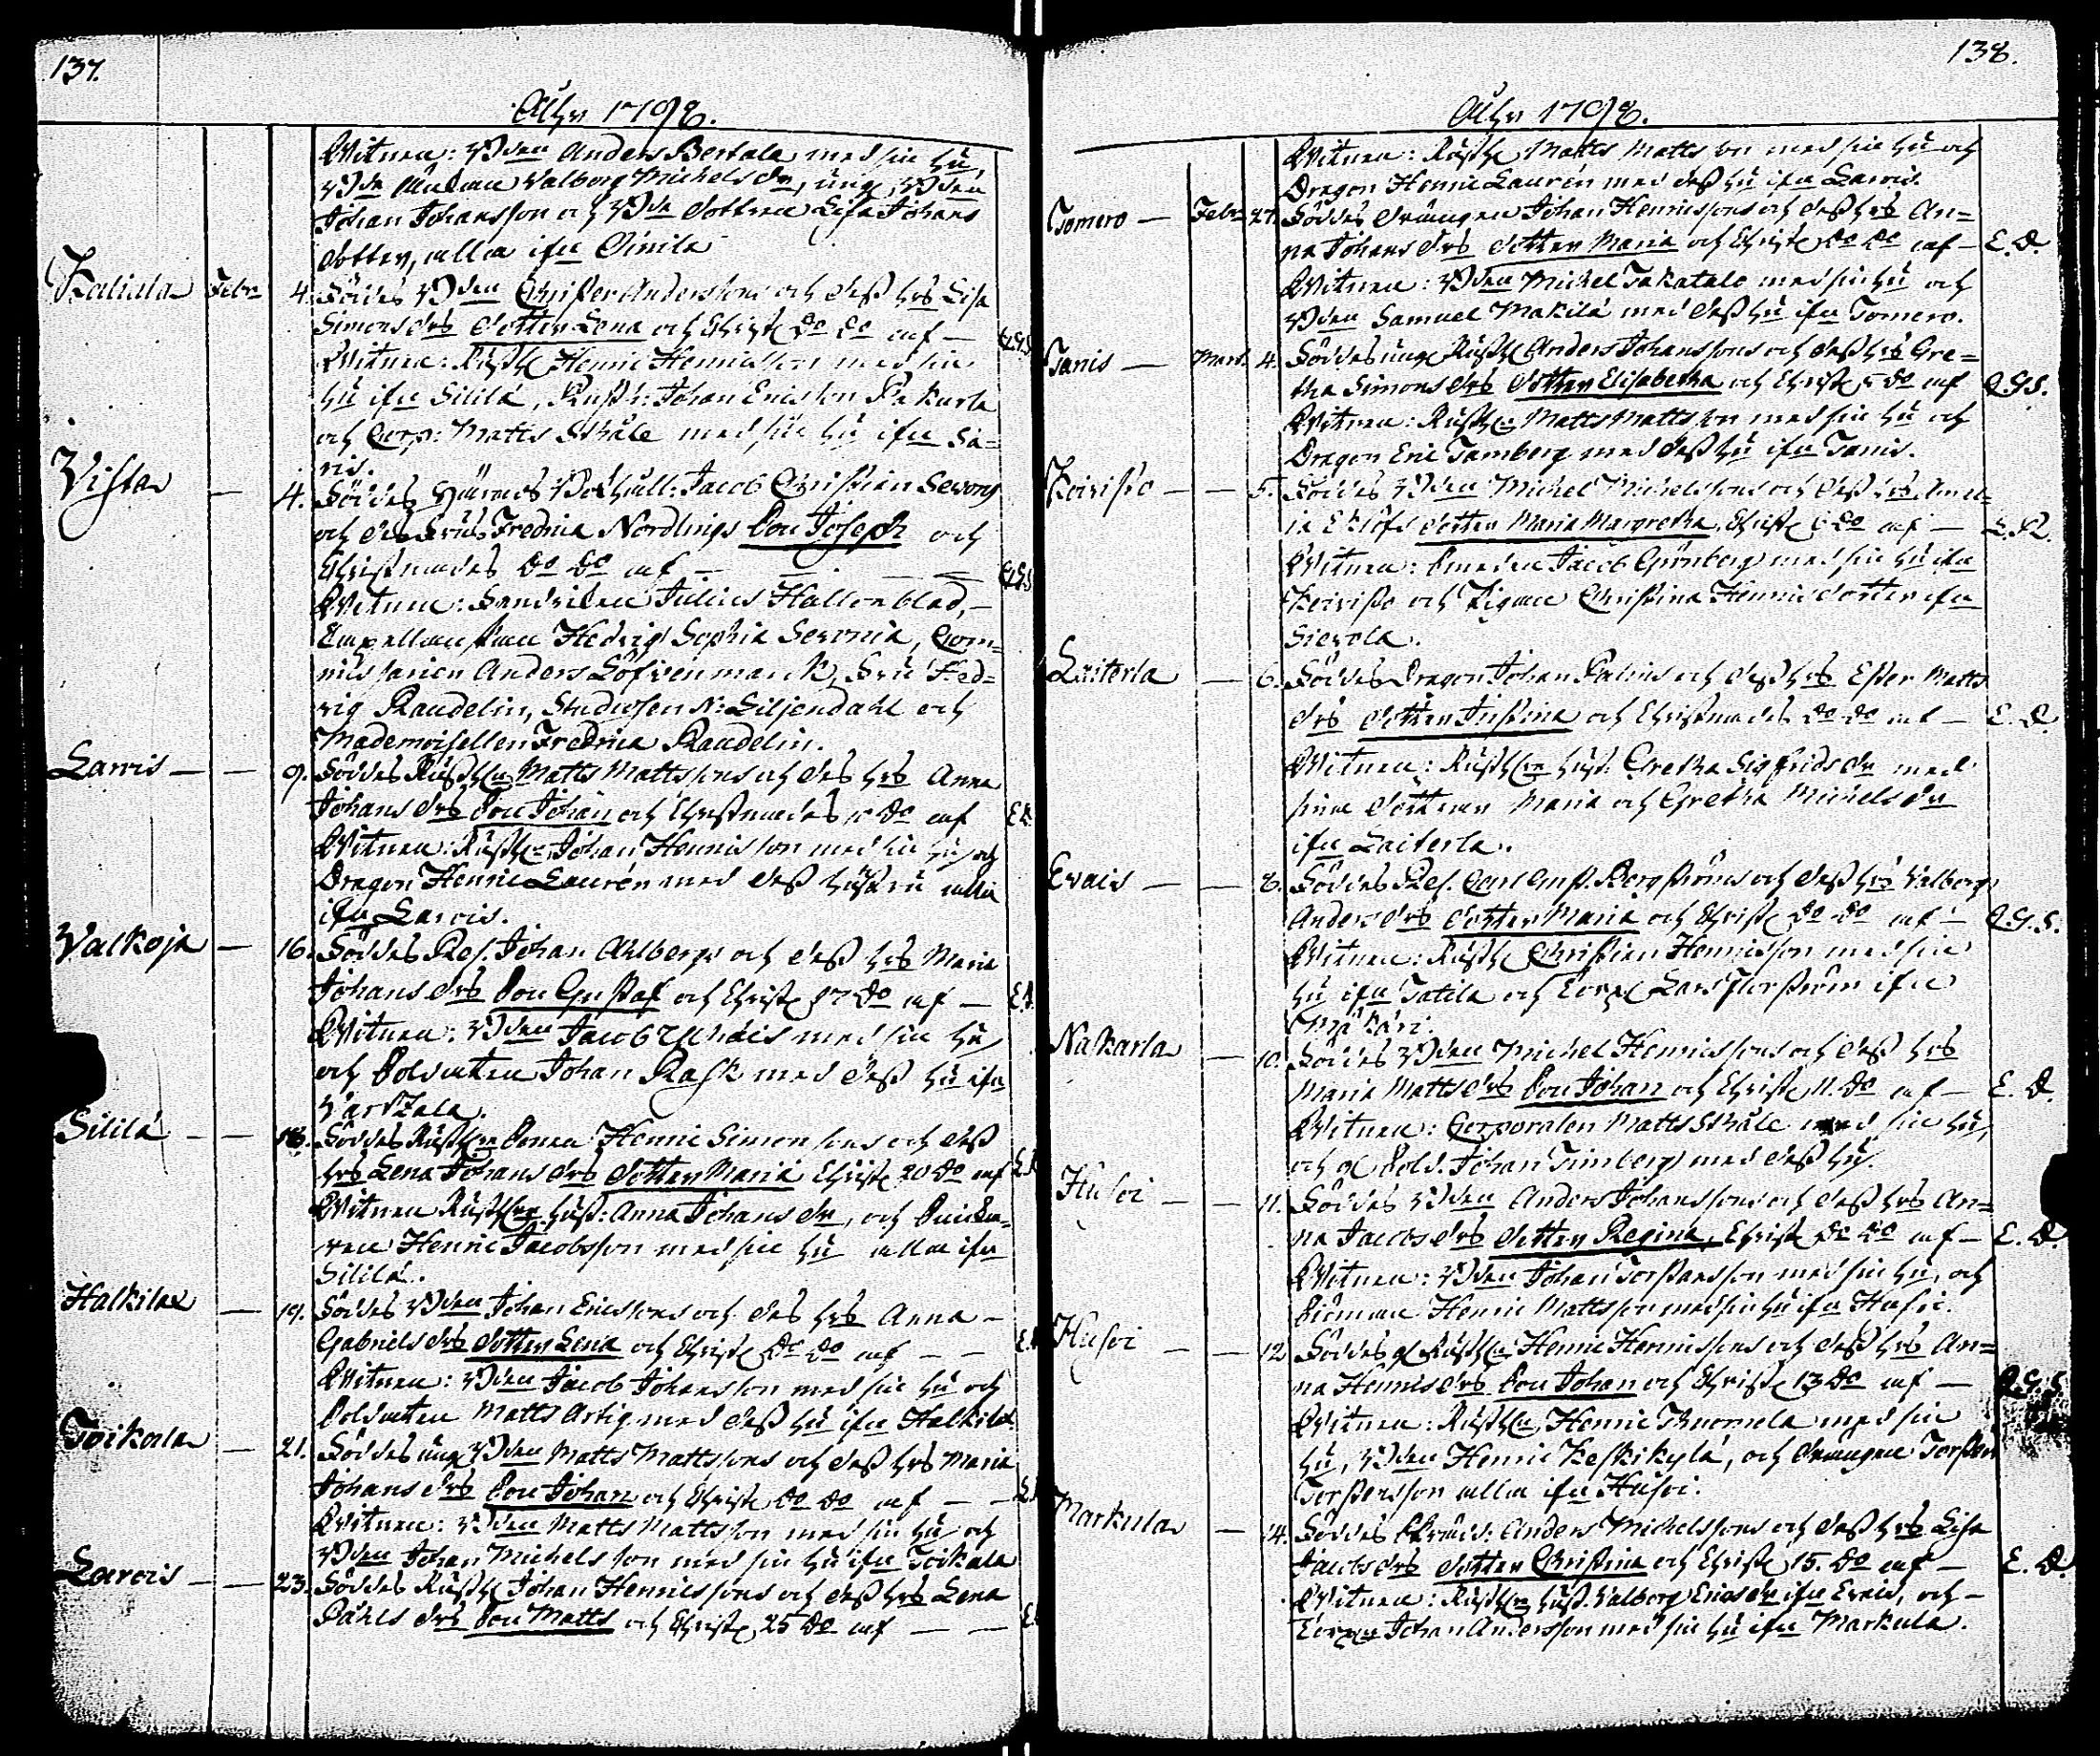 137.
Åhr 1798.
Witnen: Bden Anders Bertala med sin hu
Bde Valborg Michels dr, unge Bden
Johan Johansson och Bde dottren Lisa Johans
dotter, alla ifrn Cinila
Kaliala Febr 4. Föddes Bden Christer Anderssons och dess hrs Lisa
Simons drs dotter Lena och Christ. do do af —
Witnen: Rusth. Henric Henricsson med sin
hu ifrn Sililä, Rusth: Johan Ericsson Pakurla
och Corp: Matts Skåle med sin hu ifrn Sa=
ris.
Vista — 4. Föddes Härads Jacob Christian Serons
och des Frus Fredrica Nordlings Son Joseph och
Christnades do do af —
Witnen: Julius Hallonblad, —
Hedvig Sophia Seronia, Com=
missarien Anders Löfvenmarck, Fru Hed=
vig Raudelin, Studiosen N: Liljendahl och
Mademoisellen Fredrica Raudelin.
Larvis — — 9. Föddes Rusth. Matts Mattssons och des hrs Anna
Johans drs Son Johan och Christnades 10 do af E.D.
Witnen: Rusth. Johan Henricsson med sin hu och
Dragon Henric Laurén med dess hustru alla
ifrn Larvis.
Valkoja — 16. Föddes Ref. Johan Ahlbergs och dess hrs Maria
Johans drs Son Gustaf och Christ. 17 do af — E.D.
Witnen: Bden Jacob med sin hu
och Soldaten Johan Rask med dess hu ifrn
Sililä — — 18. Föddes Rusth. Sonen Henric Simonssons och dess
hrs Lena Johans drs dotter Maria Christ. 20 do af
Witnen Rusth. hust: Anna Johans dr, och
Henric Jacobsson med sin hu alla ifrn
Sililä.
Halkilax — 19. Föddes Bden Johan Ericssons och des hrs Anna —
Gabriels drs dotter Lena och Christ. do do af — —
Witnen: Bden Jacob Johansson med sin hu och
Soldaten Matts Artig med dess hu ifrn Halkilax.
Toikala — 21. Föddes ung Bden Matts Mattssons och dess hrs Maria
Johans drs Son Johan och Christ. do do af — —
Witnen: Bden Matts Mattsson med sin hu och
Bden Johan Michelsson med sin hu ifrn Toikala
Larvis — — 23. Föddes Rusth. Johan Henricssons och dess hrs Lena
Påhls drs Son Matts och Christ. 25 do af — —
138.
Åhr 1798.
Witnen: Rusth. Matts Mattsson med sin hu och
Dragon Henric Laurén med dess hu ifrn Larvis.
Tomero — Febr 27. Föddes drängen Johan Henricssons och dess hrs An=
na Johans drs dotter Maria och Christ. do do af — E. D.
Witnen: Bden Michel Takatalo med sin hu och
Bden Samuel Mäkilä med dess hu ifrn Tomero.
Tanis — Mart. 4. Föddes ung Rusth. Anders Johanssons och dess hrs Gre=
tha Simons drs dotter Elisabetha och Christ. 5 do af
Witnen: Rusth. Matts Mattsson med sin hu och
Dragon Eric Tamberg med dess hu ifrn Tanis.
Koivisto — — 5. Föddes Bden Michel Michelssons och dess hrs
Eklöfs dotter Maria Margretha, Christ. 6 do af —
Witnen: Smeden Jacob Grönberg med sin hu ifrn
Koivisto och Pigan Christina Henrics dotter ifrn
Sierola.
Laiterla — 6. Föddes Dragon Johan Palins och dess hrs Ester Matts
drs dotter Justina och Christnades do do af — E. D.
Witnen: Rusth. hust. Gretha Sigfrids dr med
sina döttrar Maria och Gretha Michels dr
ifrn Laiterla.
Evais — — 8. Föddes Ref. Carl Bergströms och dess hrs Valborg
Anders drs dotter Maria och Christ. do do af —
Witnen: Rusth. Christian Henricsson med sin
hu ifrn Tatila och Torp. Lars Forström ifrn
Mäkäri.
Nakarla — 10. Föddes Bden Michel Henricssons och dess hrs
Maria Matts drs Son Johan och Christ. 11. do af — E. D.
Witnen: Corporalen Matts Skåle med sin hu,
och gl. Sold. Johan Timberg med dess hu.
Husoi — — 11. Föddes Bden Anders Johanssons och dess hrs An=
na Jacobs drs dotter Regina, Christ. do do af — E. D.
Witnen: Bden Johan Torstensson med sin hu, och
Henric Mattsson med sin hu ifrn Husoi.
Husoi — — 12 Föddes gl. Rusth. Henric Henricssons och dess hrs An=
na Henrics drs Son Johan och Christ. 13 do af —
Witnen: Rusth. Henric Tuomela med sin
hu, Bden Henric Keskikylä, och drängen Torsten
Torstensson alla ifrn Husoi.
Markula — 14. Föddes Anders Michelssons och dess hrs Lisa
Jacobs drs dotter Christina och Christ. 15. do af — E. D.
Witnen: Rusth. hust. Valborg Erics dr ifrn Evais, och —
Torparen Johan Andersson med sin hu ifrn Markula.